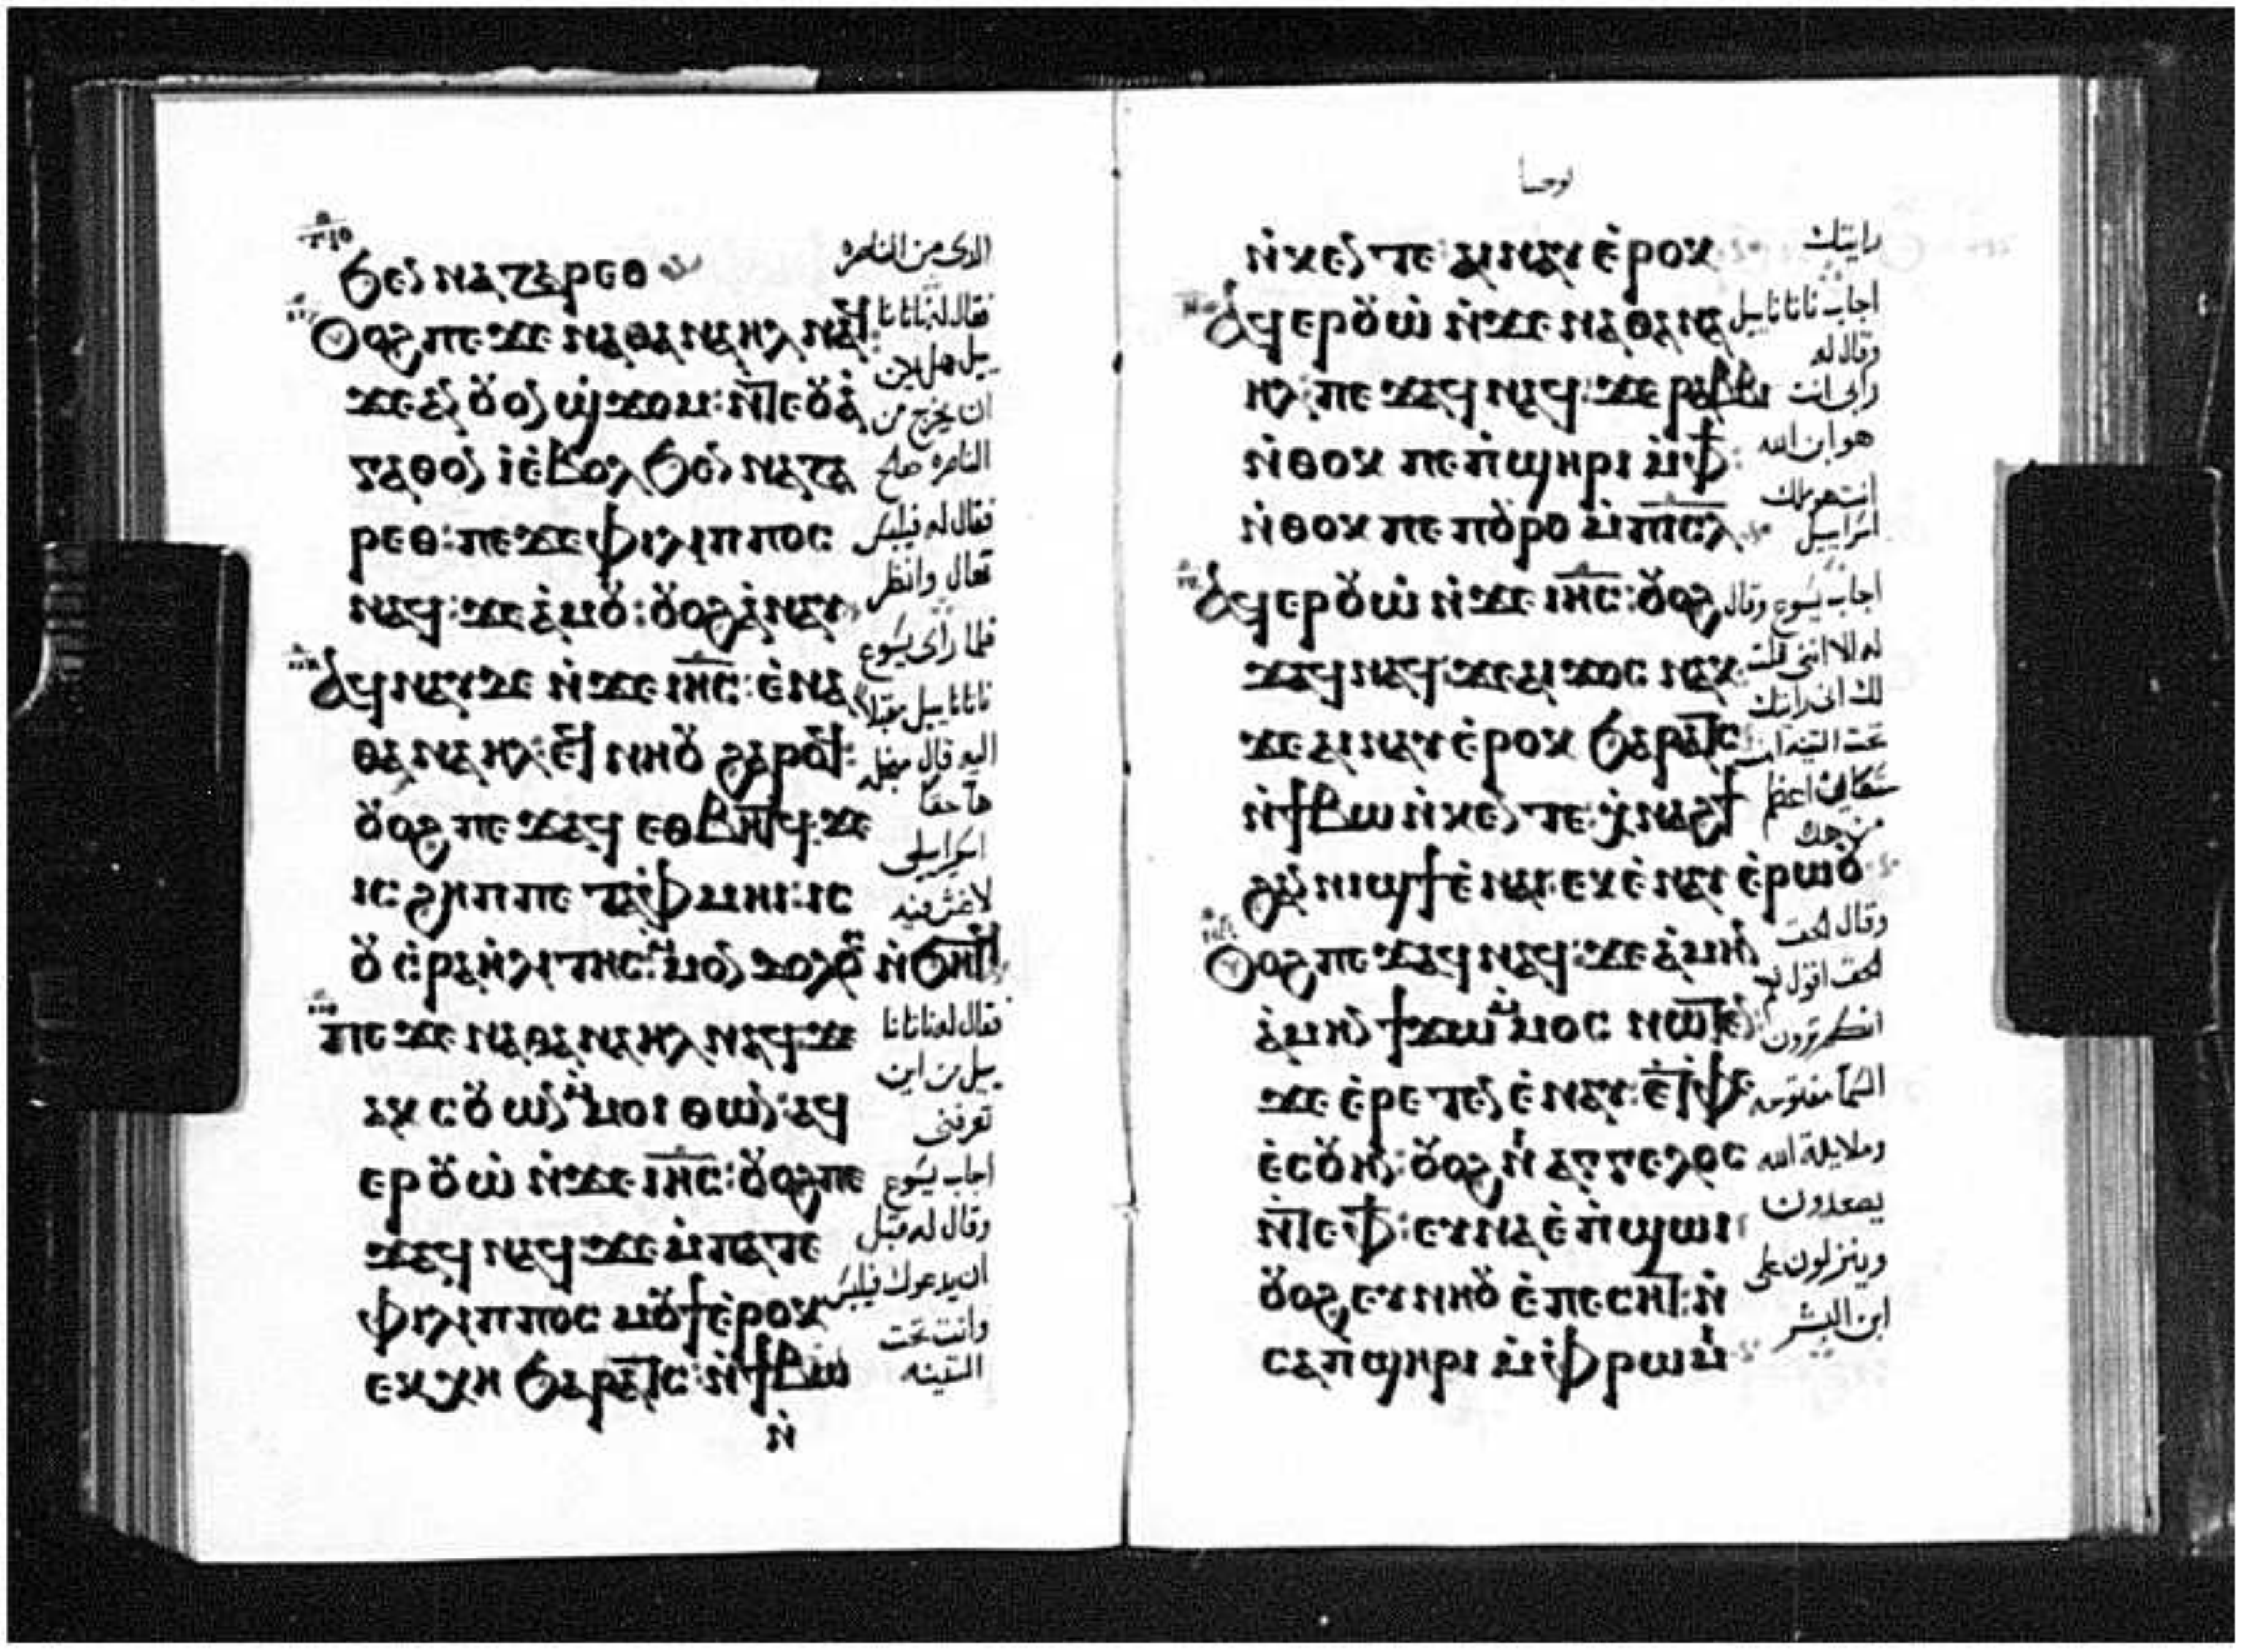 ϧⲉⲛ ⲛⲁⲍⲁⲣⲉⲑ
Ⲟⲩⲟϩ ⲡⲉϫⲉ ⲛⲁⲑⲁⲛⲁⲏⲗ ⲛⲁϥ:
ϫⲉ ⲁⲛ ⲟⲩⲟⲛ ϣϫⲟⲙ: ⲛ̀ⲧⲉ ⲟⲩⲁ̀
ⲅⲁⲑⲟⲛ ⲓ̀ ⲉ̀ⲃⲟⲗ ϧⲉⲛ ⲛⲁⲍⲁ
ⲣⲉⲑ: ⲡⲉϫⲉ ⲫⲓⲗⲓⲡⲡⲟⲥ
ⲛⲁϥ: ϫⲉ ⲁ̀ⲙⲟⲩ: ⲟⲩⲟϩ ⲁ̀ⲛⲁⲩ
Ⲁϥⲛⲁⲩ ⲇⲉ ⲛ̀ϫⲉ ⲓⲏ̅ⲥ̅: ⲉ̀ⲛⲁ
ⲑⲁⲛⲁⲏⲗ: ⲉϥⲛⲏⲟⲩ ϩⲁⲣⲟϥ:
ⲟⲩⲟϩ ⲡⲉϫⲁϥ ⲉⲑⲃⲏⲧϥ: ϫⲉ
ⲓⲥ ϩⲏⲡⲡⲉ ⲧⲁⲫ̀ⲙⲏⲓ: ⲓⲥ
ⲟⲩ ⲉ̀ⲣⲁⲏ̀ⲗⲓⲧⲏⲥ: ⲙ̀ⲙⲟⲛ ⲇⲟⲗⲟⲩ ⲛ̀ϧⲏⲧϥ
ⲡⲉϫⲉ ⲛⲁⲑⲁⲛⲁⲏⲗ ⲛⲁϥ: ϫⲉ
ⲁⲕⲥⲱⲟⲩⲛ ⲙ̀ⲙⲟⲓ ⲑⲱⲛ: ⲁϥ
ⲉⲣⲟⲩⲱ̀ ⲛ̀ϫⲉ ⲓⲏ̅ⲥ̅: ⲟⲩⲟϩ ⲡⲉ
ϫⲁϥ ⲛⲁϥ ϫⲉ ⲙ̀ⲡⲁⲧⲉ
ⲫⲓⲗⲓⲡⲡⲟⲥ ⲙⲟⲩϯ ⲉ̀ⲣⲟⲕ
ⲉⲕⲭⲏ ϧⲁⲣⲁⲧⲥ: ⲛ̀ϯⲃⲱ
ⲛ̀
الذى من الناصره
فقال له ناثانا
ييل هل يمكن
ان يخرج من
الناصره صلح
فقال له فيلبس
تعال وانظر
فلما راى يسوع
ناثاناييل مقبلا
اليه قال من اجله
هذا حقا
اسراييلى
لا غش فيه
فقال له ناثانا
ييل من اين
تعرفنى
اجاب يسوع
وقال له قبل
ان يدعوك فيلبس
وانت تحت
التينه
يوحنا
ⲛ̀ⲕⲉⲛⲧⲉ: ⲁⲓⲛⲁⲩ ⲉ̀ⲣⲟⲕ
Ⲁϥⲉⲣⲟⲩⲱ̀ ⲛ̀ϫⲉ ⲛⲁⲑⲁⲛⲁ
ⲏⲗ: ⲡⲉϫⲁϥ ⲛⲁϥ: ϫⲉ ⲣⲁⲃⲃⲓ
ⲛ̀ⲑⲟⲕ ⲡⲉ ⲡ̀ϣⲏⲣⲓ ⲙ̀ⲫϯ:
ⲛ̀ⲑⲟⲕ ⲡⲉ ⲡⲟⲩⲣⲟ ⲙ̀ⲡⲓⲥ̅ⲗ̅
Ⲁϥⲉⲣⲟⲩⲱ̀ ⲛ̀ϫⲉ ⲓⲏ̅ⲥ̅: ⲟⲩⲟϩ
ϫⲁϥ ⲛⲁϥ: ϫⲉ ⲁⲓϫⲟⲥ ⲛⲁⲕ:
ϫⲉ ⲁⲓⲛⲁⲩ ⲉ̀ⲣⲟⲕ ϧⲁⲣⲁⲧⲥ
ⲛ̀ϯⲃⲱ ⲛ̀ⲕⲉⲛⲧⲉ: ⲭ̀ⲛⲁϩϯ
ϩⲁⲛⲛⲓϣϯ ⲉ̀ⲛⲁⲓ: ⲉⲕⲉ̀ⲛⲁⲩ ⲉ̀ⲣⲱⲟⲩ
Ⲟⲩⲟϩ ⲡⲉϫⲁϥ ⲛⲁϥ: ϫⲉ ⲁ̀ⲙⲏⲛ
ⲁ̀ⲙⲏⲛ ϯϫⲱ ⲙ̀ⲙⲟⲥ ⲛⲱⲧⲉⲛ:
ϫⲉ ⲉ̀ⲣⲉⲧⲉⲛⲉ̀ⲛⲁⲩ: ⲉ̀ⲧⲫⲉ
ⲉ̀ⲥⲟⲩⲏⲛ: ⲟⲩⲟϩ ⲛⲓⲁⲅⲅⲉⲗⲟⲥ
ⲛ̀ⲧⲉ ⲫϯ: ⲉⲩⲛⲁ ⲉ̀ⲡ̀ϣⲱⲓ:
ⲟⲩⲟϩ ⲉⲩⲛⲏⲟⲩ ⲉ̀ⲡⲉⲥⲏⲧ: ⲛ̀
ⲥⲁ ⲡ̀ϣⲏⲣⲓ ⲙ̀ⲫ̀ⲣⲱⲙⲓ
رايتك
اجاب ناثاناييل
وقال له
رابى انت
هو ابن الله
انت هو ملك
اسراييل
اجاب يسوع وقال
له الا اننى قلت
لك انى رايتك
تحت التينه امنت
اعظم
من هذا
وقال الحق
الحق اقول لكم
انكم ترون
السما مفتوحه
وملايكة الله
يصعدون
وينزلون على
ابن البشر